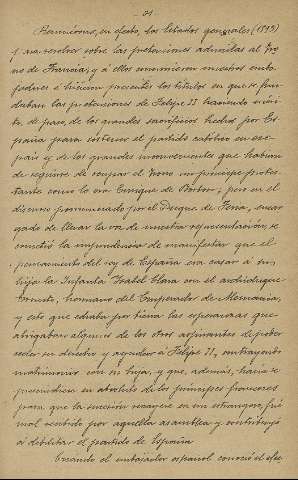 21
Reuniéronse, en efecto, los Estados generales (1593)
para resolver sobre las pretensiones aducidas al tro
no de Francia, y á ellos concurrieron nuestros emba
jadores é hicieron presentes los títulos en que se fun
daban las pretensiones de Felipe II haciendo méri-
to, de paso, de los grandes sacrificios hechos por Es
paña para sostener el partido católico en ese
pais y de los grandes inconvenientes que habian
de seguirse de ocupar el trono un príncipe protes-
tante como lo era Enrique de Borbon; pero en el
discurso pronunciado por el Duque de Feria, encar
gado de llevar la voz de nuestra representación, se
cometió la imprudencia de manifestar que el
pensamiento del rey de España era casar á su
hija la Infanta Isabel Clara con el archiduque
Ernesto, hermano del Emperador de Alemania,
y esto que echaba por tierra las esperanzas que
abrigaban algunos de los otros aspirantes de poder
ceder su derecho y ayudar á Felipe II, contrayendo
matrimonio con su hija, y que, además, hacia se
prescindiera en absoluto de los príncipes franceses
para que la sucesión recayese en un extranjero, fué
mal recibido por aquella asamblea y contribuyó
á debilitar el partido de España
Cuando el embajador español conoció el efec